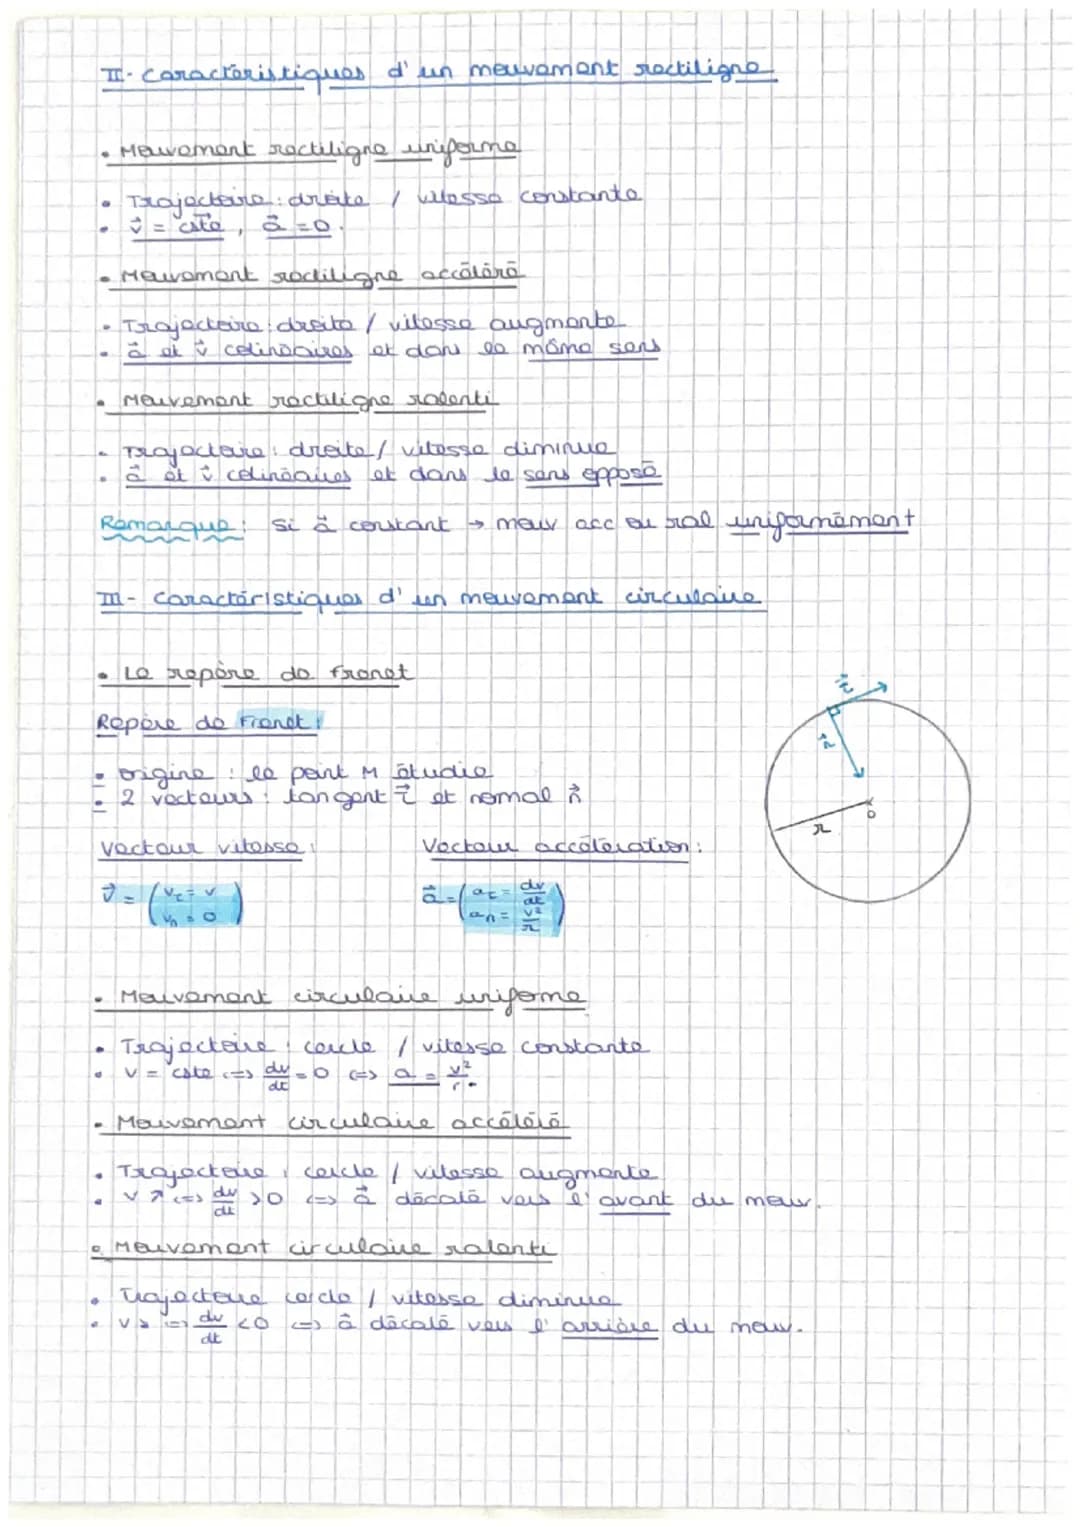 II- Caractéristiques d'un mouvement rectiligne
• Mouvement rectiligne uniforme
• Trajectoire : droite / vitesse constante
• v⃗ = cste⃗, a⃗ = 0.
• Mouvement rectiligne accéléré
• Trajectoire : droite / vitesse augmente
• a⃗ et v⃗ colinéaires et dans le même sens
• Mouvement rectiligne ralenti
• Trajectoire : droite / vitesse diminue
• a⃗ et v⃗ colinéaires et dans le sens opposé
Remarque : Si a⃗ constant → mouv acc ou ral uniformément
III- Caractéristiques d'un mouvement circulaire
• Le repère de Frenet
Repère de Frenet :
• origine : le point M étudié
• 2 vecteurs : tangent τ⃗ et normal n⃗
Vecteur vitesse : Vecteur accélération :
v⃗ = (vτ = v ; vn = 0) a⃗ = (aτ = dv/dt ; an = v²/r)
r
o
• Mouvement circulaire uniforme
• Trajectoire : cercle / vitesse constante
• v = cste <=> dv/dt = 0 <=> a = v²/r.
• Mouvement circulaire accéléré
• Trajectoire : cercle / vitesse augmente
• v ↗ <=> dv/dt > 0 <=> a⃗ décalé vers l'avant du mouv.
• Mouvement circulaire ralenti
• Trajectoire cercle / vitesse diminue
• v ↘ <=> dv/dt < 0 <=> a⃗ décalé vers l'arrière du mouv.